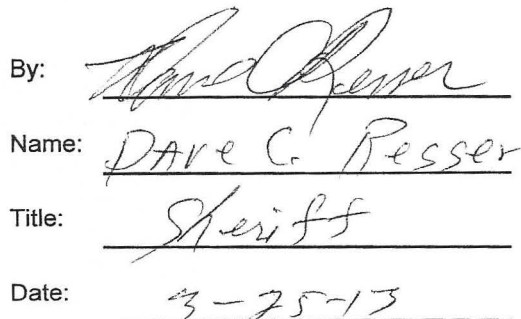 By:
Name: DAve C. Resser
Title: Sheriff
Date: 3-25-13